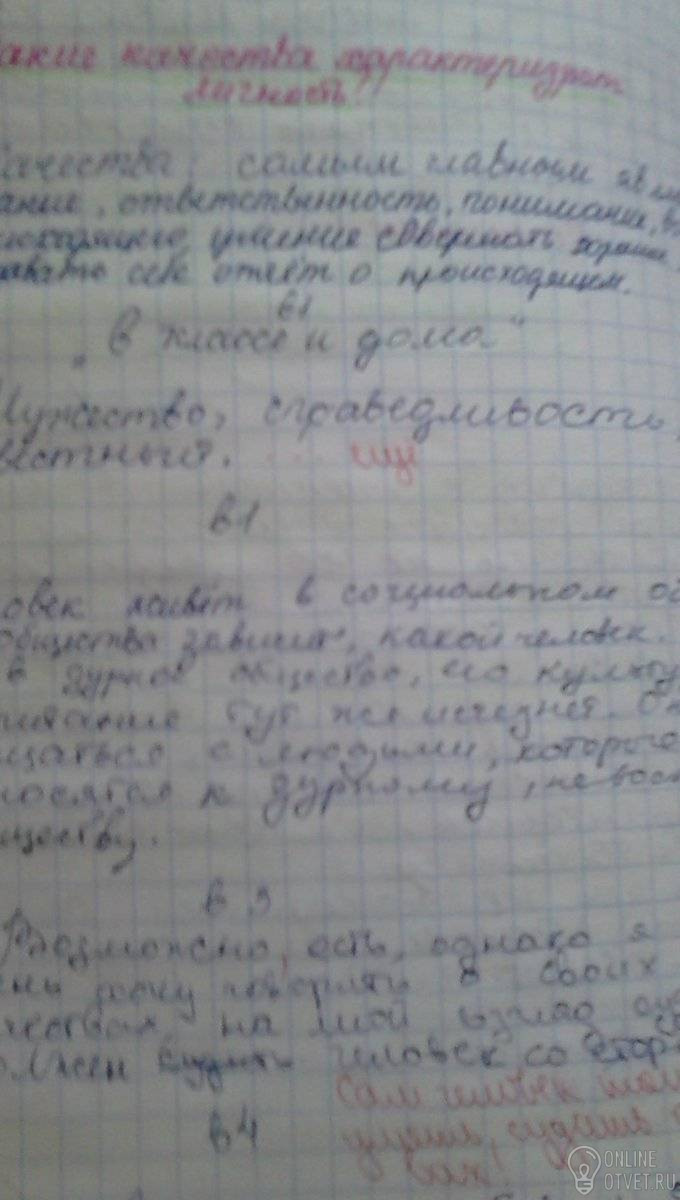 акие качества характеризуют
личность?
качества: самым главным явл
ание, ответственность, понимание, в
умение совершать хорошие
давать себе отчёт о происходящем.
в1
„в классе и дома"
Мужество, справедливость,
вестный. ещё
в1
ловек живёт в социальном об
общества зависит, какой человек.
в дурное общество, его культу
питание тут же исчезнет.
щаться с людьми, которые
носятся к дурному, невос
ществу.
в 3
Возможно, есть, однако я
могу говорить о своих
чествах, на мой взгляд
олжен судить человек со стор
сам человек
в4
судить
ONLINE
OTVET.RU